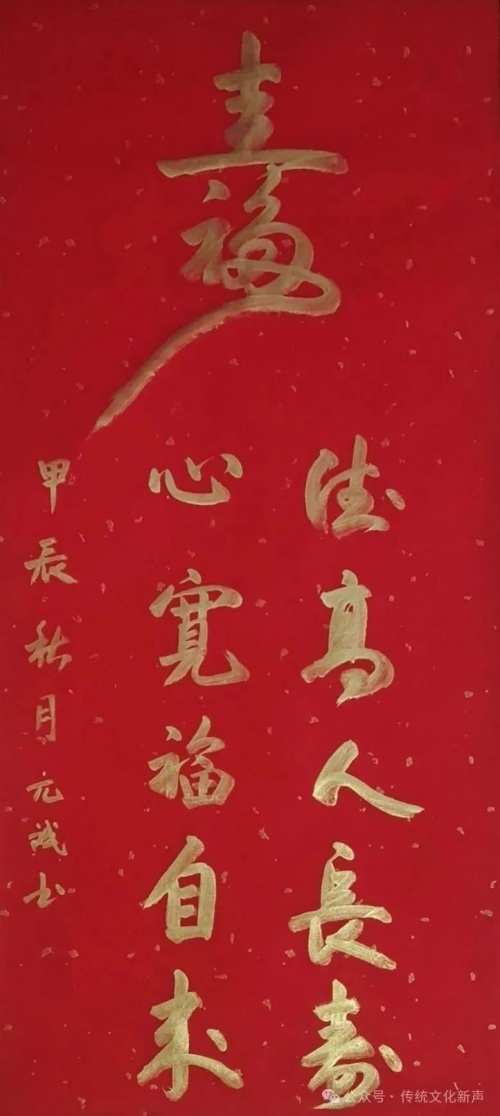 福寿
德高人長寿
心寬福自来
甲辰秋月元诚书
公众号·传统文化新声